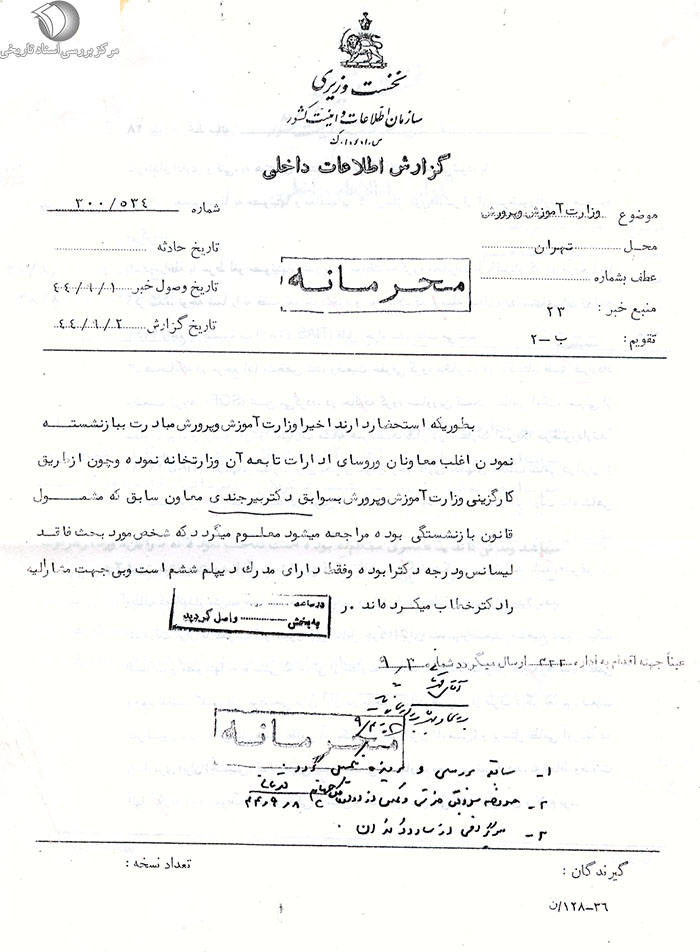 مرکز بررسی اسناد تاریخی
نخست وزیری
سازمان اطلاعات و امنیت کشور
س.ا.و.ا.ک
گزارش اطلاعات داخلی
موضوع وزارت آموزش وپرورش
محل تهران
عطف بشماره
منبع خبر : ۲۳
تقویم : ب-۲
شماره ۳۰۰/۵۳۴
تاریخ حادثه
تاریخ وصول خبر ۴۴/۹/۱
تاریخ گزارش ۴۴/۹/۲
محرمانه
بطوریکه استحضار دارند اخیرا وزارت آموزش وپرورش مبادرت ببازنشسته
نمودن اغلب معاونان وروسای ادارات تابعه آن وزارتخانه نموده وچون از طریق
کارگزینی وزارت آموزش وپرورش بسوابق دکتر بیرجندی معاون سابق که مشمول
قانون بازنشستگی بوده مراجعه میشود معلوم میگردد که شخص مورد بحث فاقد
لیسانس ودرجه دکترا بوده وفقط دارای مدرك دیپلم ششم است وبی جهت مشارالیه
را دکتر خطاب میکرده اند. ر
در ساعه
به بخش واصل گردید
عیناً جهته اقدام به اداره ۳۲۲ ارسال میگردد
محرمانه
۱- سابقه بررسی و
۲-
۳-
گیرندگان :
تعداد نسخه :
۳۶-۱۲۸/ن